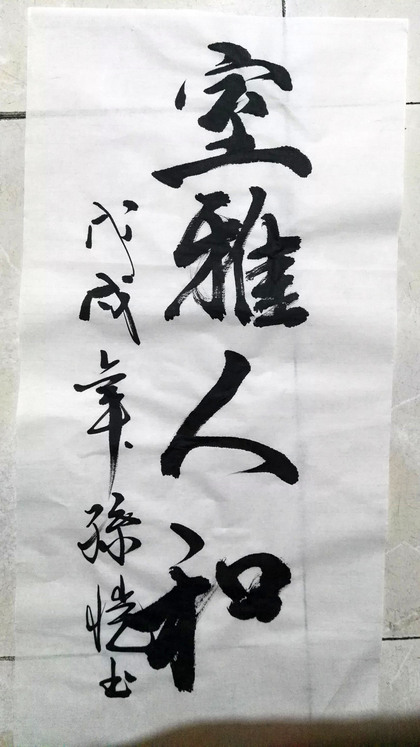 室雅人和
戊戌年孫愷书